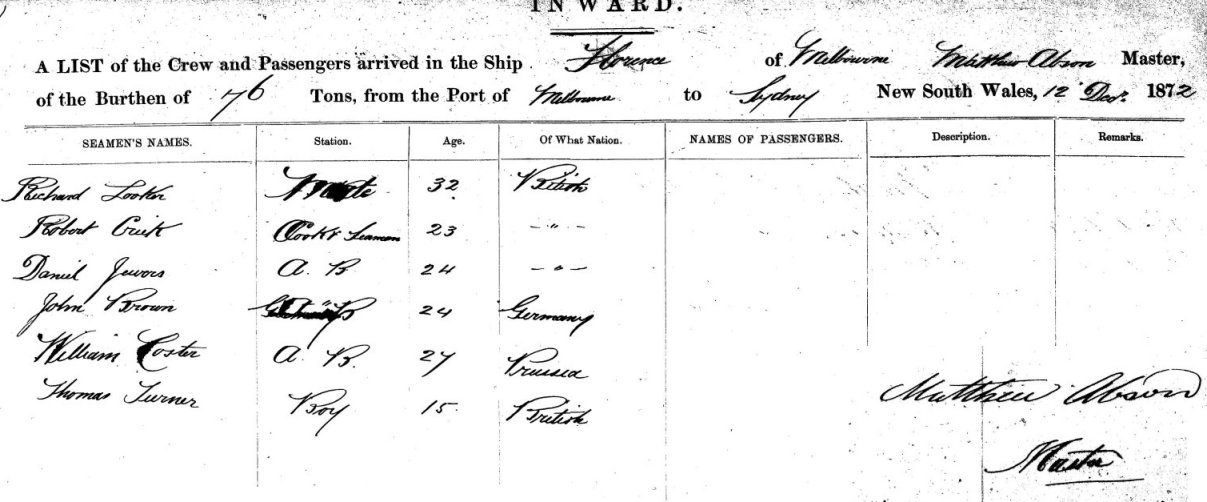 INWARD.
A LIST of the Crew and Passengers arrived in the Ship Florence of Melbourne Matthew Abson Master,
of the Burthen of 76 Tons, from the Port of Melbourne to Sydney New South Wales, 12 Decr. 1872
SEAMEN'S NAMES. Station. Age. Of What Nation. NAMES OF PASSENGERS. Description. Remarks.
Richard Looker Mate 32 British
Robert Crick Cook & Seaman 23 - " -
Daniel 24 - " -
A. B
John Brown 24 Germany
William Coster A. B. 27 Prussia
Thomas Turner Boy 15. British
Matthew Abson
Master